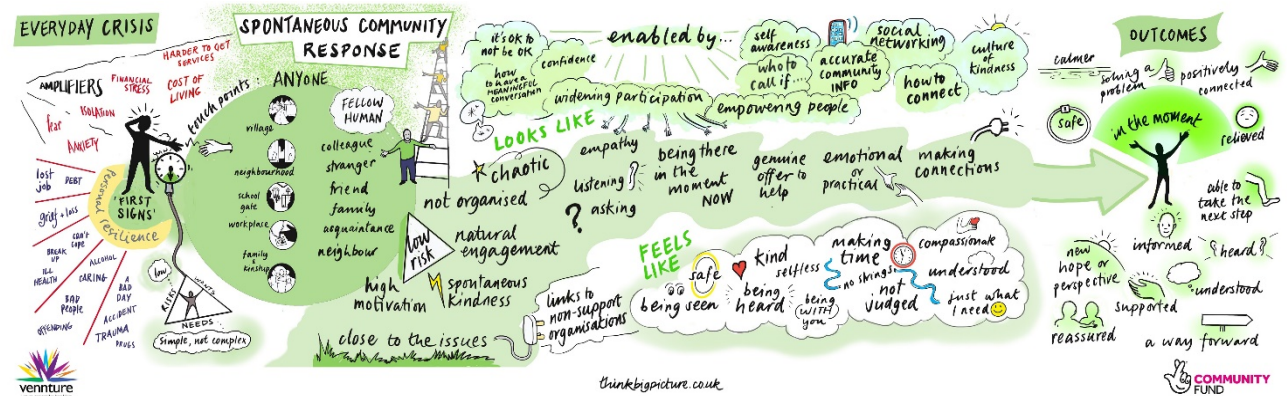 EVERYDAY CRISIS
AMPLIFIERS
HARDER TO GET
SERVICES
FINANCIAL
STRESS
COST OF
LIVING
fear
ISOLATION
ANXIETY
lost
job
DEBT
grief + loss
can't
cope
BREAK
UP
ILL
HEALTH
ALCOHOL
CARING
BAD
PEOPLE
A
BAD
DAY
ACCIDENT
OFFENDING
TRAUMA
DRUGS
personal resilience
'FIRST
SIGNS'
low
RISKS
WANTS
NEEDS
Simple, not complex
vennture
SPONTANEOUS COMMUNITY
RESPONSE
touch points:
ANYONE
village
neighbourhood
school
gate
workplace
family
& kinship
FELLOW
HUMAN
colleague
stranger
friend
family
acquaintance
neighbour
low
risk
high
motivation
close to the issues
not organised
chaotic
natural
engagement
spontaneous
kindness
links to
non-support
organisations
enabled by...
it's OK to
not be OK
confidence
how
to have a
MEANINGFUL
conversation
widening participation
self
awareness
who to
call if...
empowering people
accurate
community
INFO
social
networking
how to
connect
culture
of
kindness
LOOKS LIKE
empathy
listening
? asking
being there
in the
moment
NOW
genuine
offer to
help
emotional
or
practical
making
connections
FEELS
LIKE
safe
being seen
kind
selfless
being
heard
being
WITH
you
making
time
no strings
not
judged
compassionate
understood
just what
I need
OUTCOMES
calmer
solving a
problem
positively
connected
safe
in the moment
relieved
able to
take the
next step
informed
heard
new
hope or
perspective
understood
supported
reassured
a way forward
thinkbigpicture.co.uk
COMMUNITY
FUND